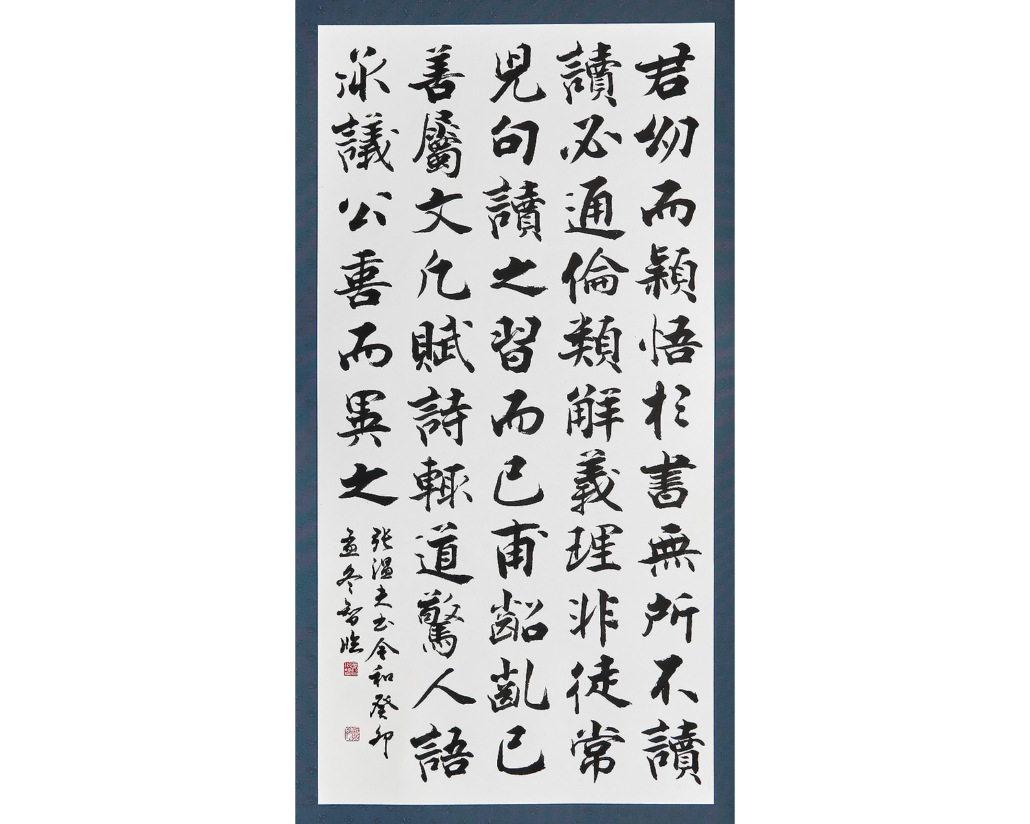 君幼而穎悟於書無所不讀
讀必通倫類解義理非徒常
児句讀之習而已甫齠齔已
善屬文凡賦詩輒道驚人語
泳議公喜而異之
张温夫书令和癸卯
孟冬智臨